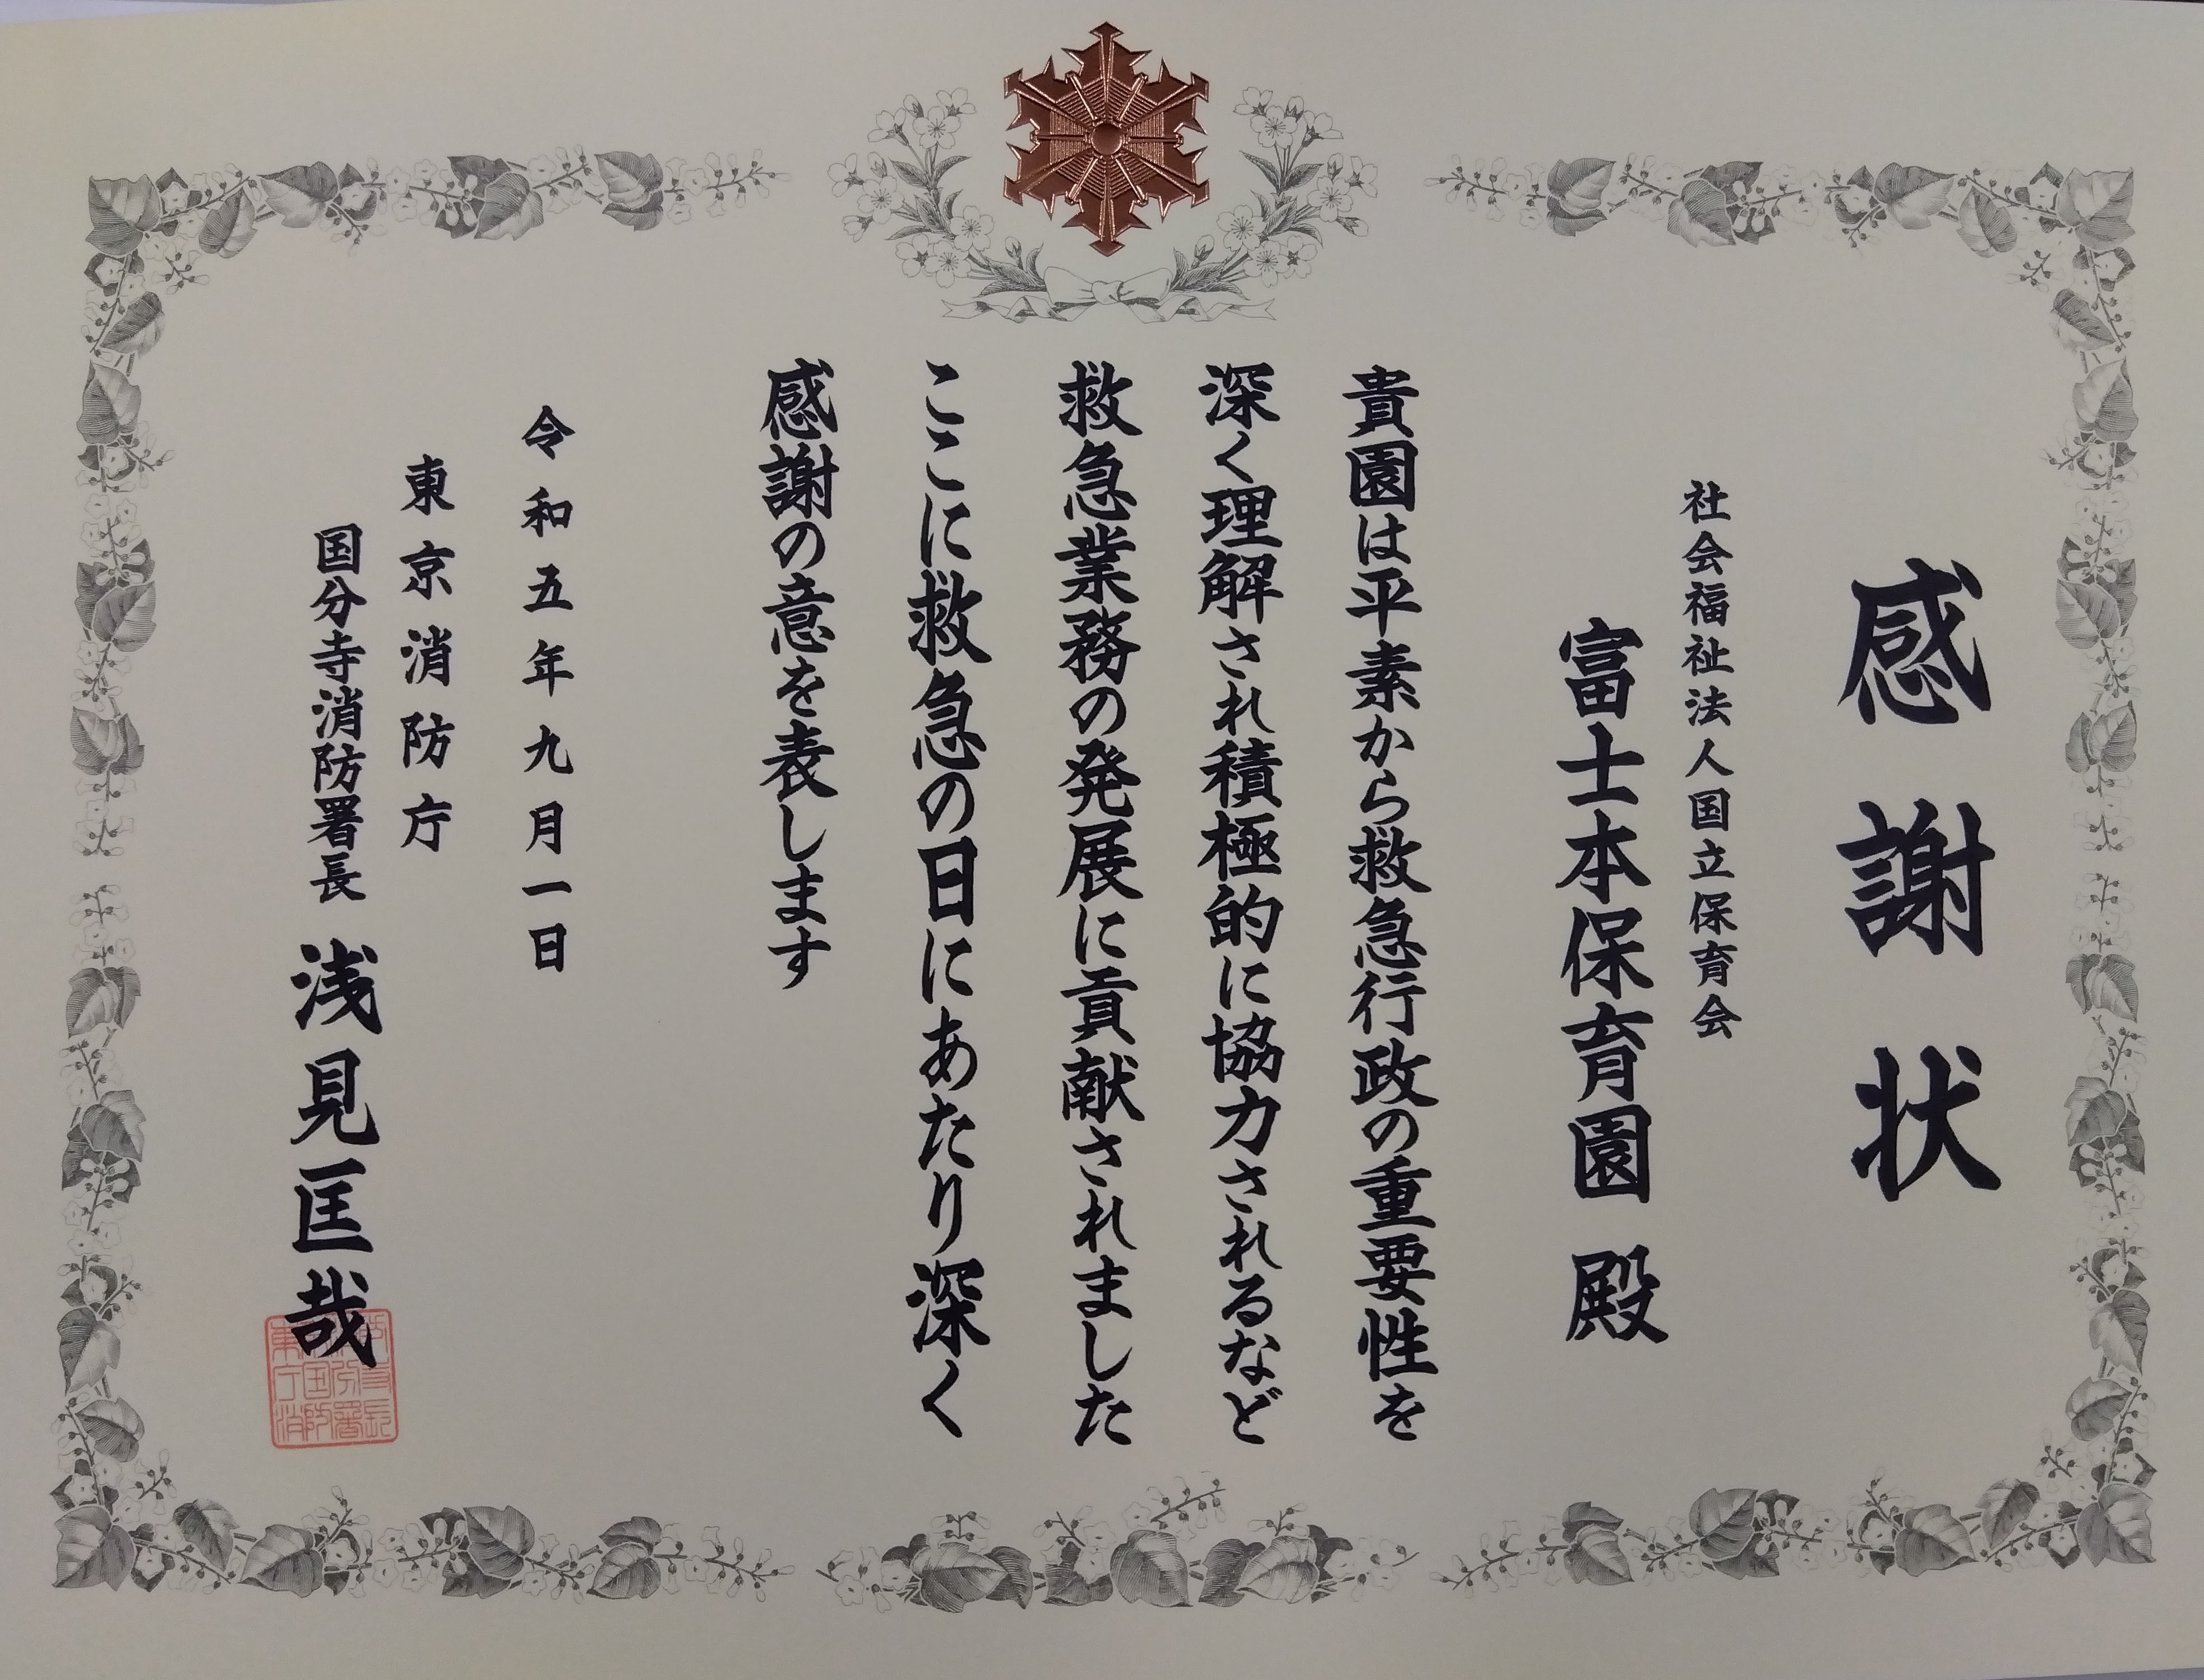 感謝状
社会福祉法人国立保育会
富士本保育園 殿
貴園は平素から救急行政の重要性を
深く理解され積極的に協力されるなど
救急業務の発展に貢献されました
ここに救急の日にあたり深く
感謝の意を表します
令和五年九月一日
東京消防庁
国分寺消防署長 浅見匡哉